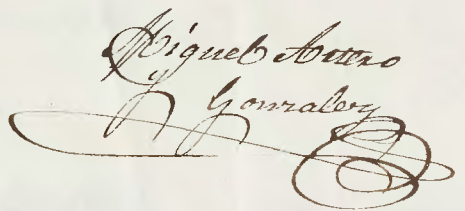 Miguel Artero
y
Gonzalez